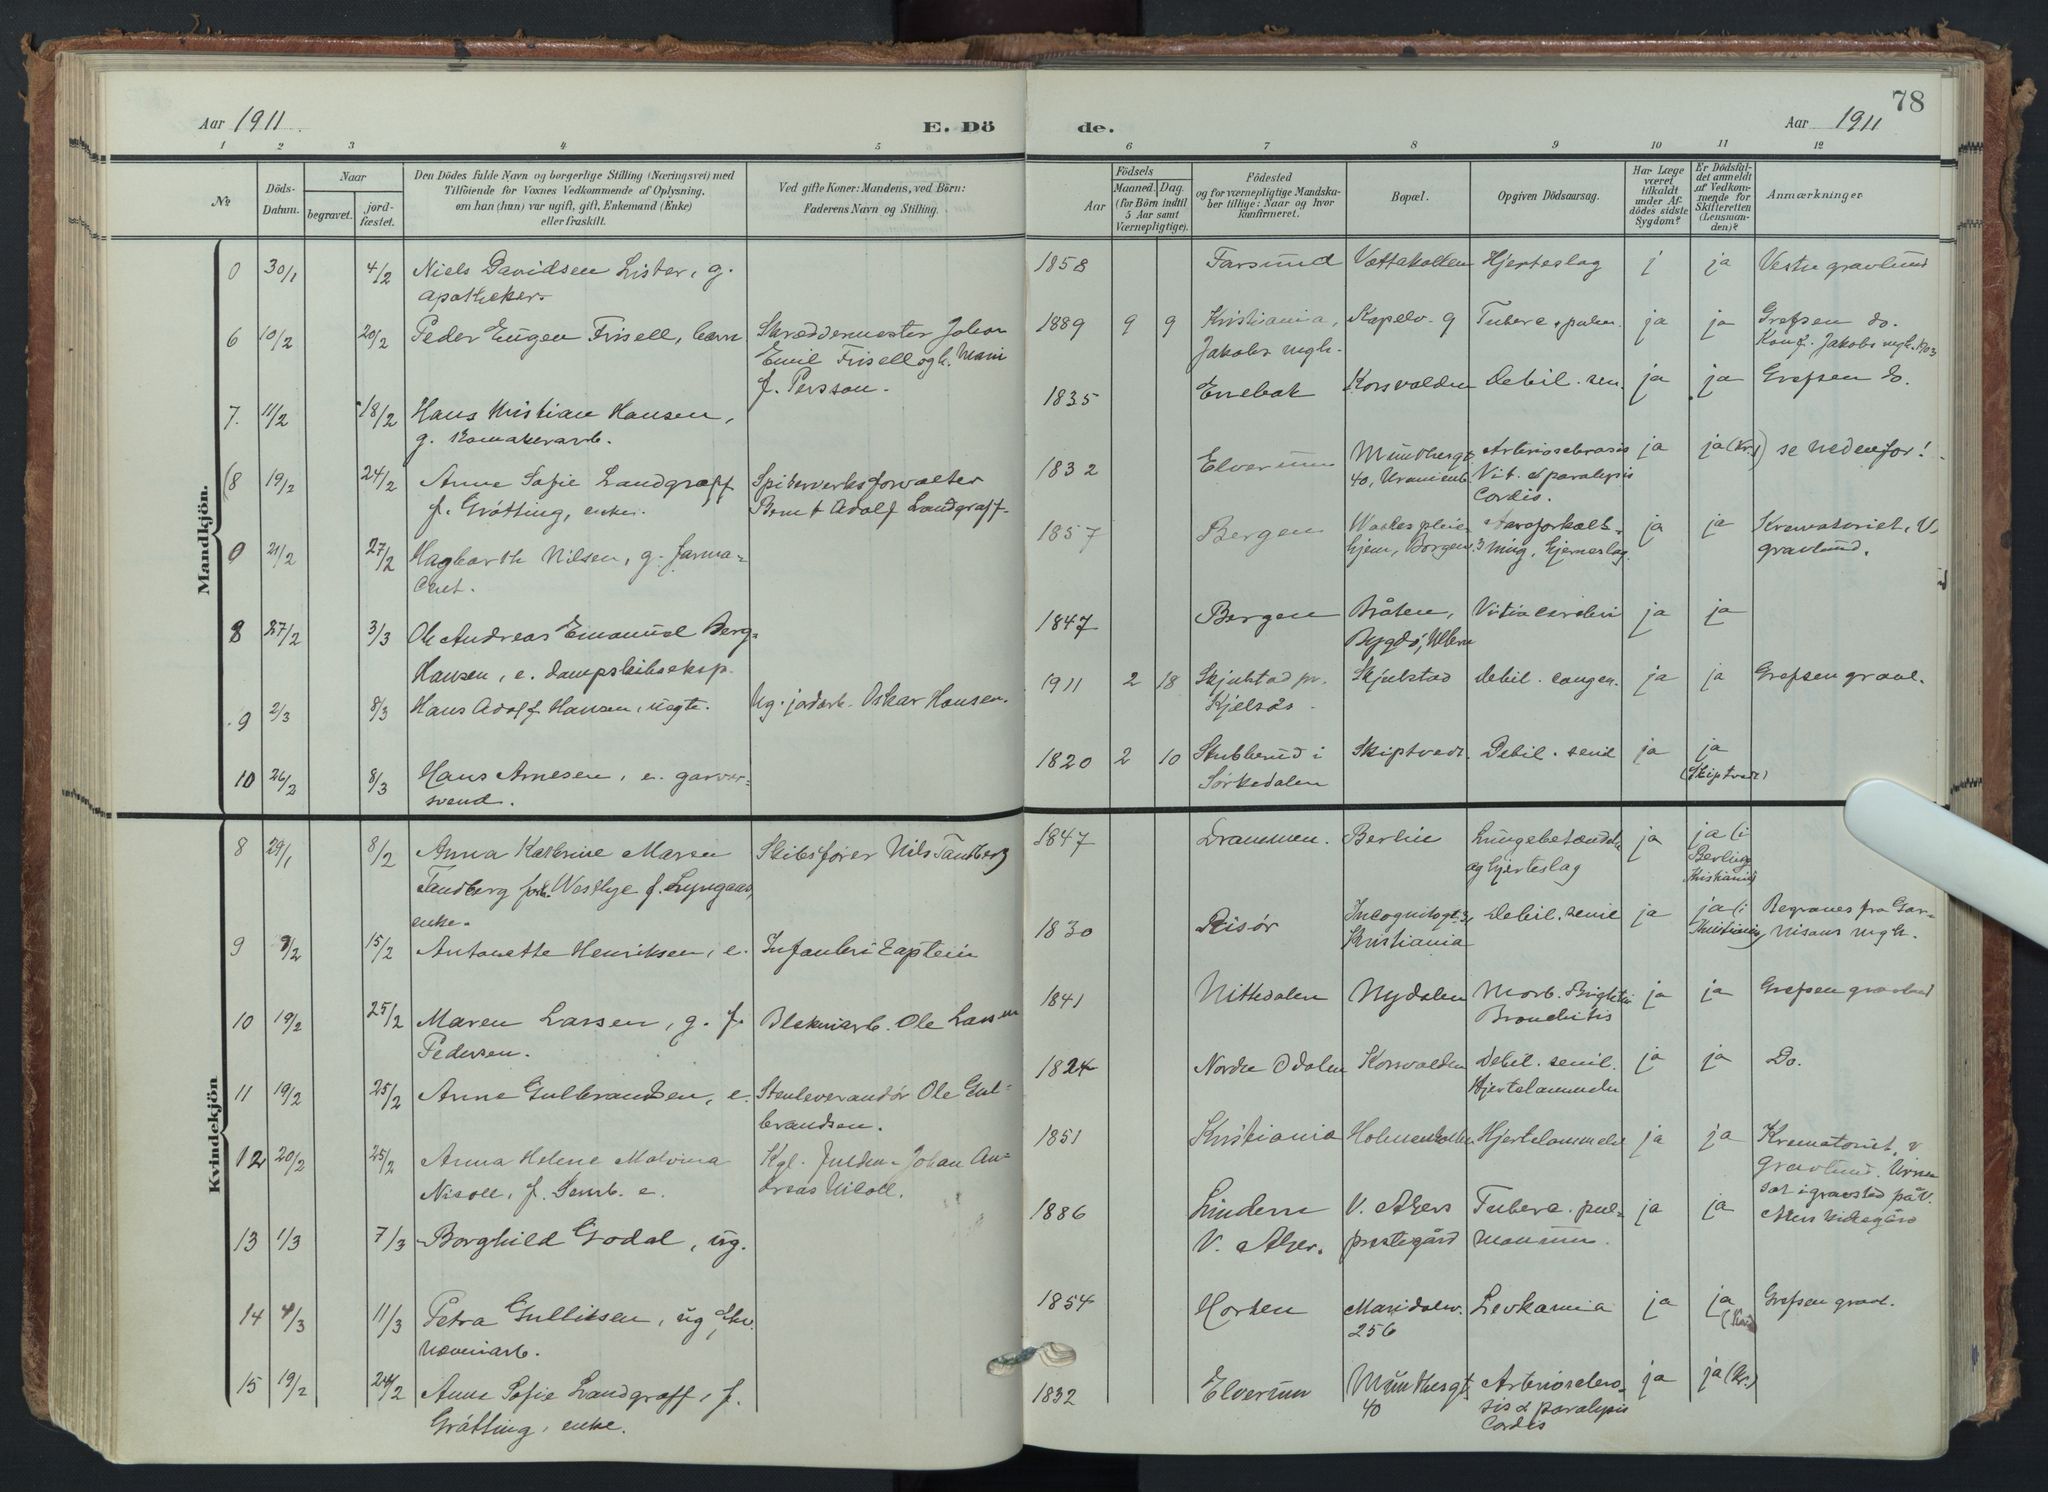 Aar 1911.
E. Dö
de.
Aar 1911
78
1 2 3 4 5 6 7 8 9 10 11 12
No
Döds-Datum.
Naar
begravet.
jord-fæstet.
Den Dödes fulde Navn og borgerlige Stilling (Næringsvei) med
Tilföiende for Voxnes Vedkommende af Oplysning,
om han (hun) var ugift, gift, Enkemand (Enke)
eller fraskilt.
Ved gifte Koner: Mandens, ved Börn:
Faderens Navn og Stilling.
Födsels
Aar
Maaned. Dag.
(for Börn indtil
5 Aar samt
Værnepligtige).
Födested
og for værnepligtige Mandska-
ber tillige: Naar og hvor
konfirmeret.
Bopæl.
Opgiven Dödsaarsag.
Har Læge
været
tilkaldt
under Af-
dödes sidste
Sygdom?
Er Dödsfal-
det anmeldt
af Vedkom-
mende for
Skifteretten
(Lensman-
den)?
Anmærkninger
Mandkjön.
0 30/1 4/2 Niels Davidsen Lister, g. 1858 Farsund Vættakollen Hjerteslag j ja Vestre gravlund
apotheker
6 10/2 20/2 Peder Eugen Frisell, barn Skræddermester Johan 1889 9 9 Kristiania, Kapelv. 9 Tuberc. pulm. ja ja Grefsen do.
Emil Frisell og h. Marie Jakobs mgh. Konf. Jakobs mgh. 1903
f. Persson.
7. 11/2 18/2 Hans Kristian Hansen, 1835 Enebak Korsvolden Debil. sen. ja ja Grefsen do.
g. komakerarb.
(8 19/2 24/2 Anne Sofie Landgraff Spigerverksforvalter 1832 Elverum Munthesgt. Arteriosclerosis ja ja (Kr.) se nedenfor!
f. Grötting, enke. Bernt Adolf Landgraff. 40, Uranienb. Vit. et paralysis
Cordis.
0 21/2 27/2 Hagbarth Nilsen, g. farma- 1857 Bergen Aareforkalk- ja ja Krematoriet, V.
ceut. hjem, Borgenv. 3 ning, hjerneslag gravlund.
8 27/2 3/3 Ole Andreas Emanuel Berg- 1847 Bergen Bråten, Vitia cordis ja ja
Hansen, e. dampskibseksp. Bygdö, Ullern
9 2/3 8/3 Hans Adolf Hansen, uegte. Ug. jordarb. Oskar Hansen. 1911 2 18 Skjulstad pr. Skjulstad Debil. congen. ja ja Grefsen gravl.
Kjelsås.
10 26/2 8/3 Hans Arnesen, e. garver- 1820 2 10 Stubberud i Skiptvedt Debil. senil ja ja
svend. Sörkedalen (Skiptvedt)
Kvindekjön
8 29/1 8/2 Anna Kathrine Maren Skibsförer Nils Tandberg 1847 Drammen. Berlin Lungebetændelse ja ja (i
Tandberg forh. Westbye f. Lyngaas, og hjerteslag Berlin og
enke. Kristiania)
9 9/2 15/2 Antonette Henriksen, e. Infanteri Captein 1830 Risör Incognitogt. 3, Debil. senil ja ja (i Begraves fra Gar-
Kristiania Kristiania) nisons mgh.
10 19/2 25/2 Maren Larsen, g. f. Blekeriarb. Ole Larsen 1841 Nittedalen Nydalen Morb. Brightii ja ja Grefsen gravlund
Pedersen. Bronchitis
11 19/2 25/2 Anne Gulbrandsen, e. Stenleverandör Ole Gul- 1824 Nordre Odalen Korsvolden Debil. senil. ja ja Do.
brandsen. Hjertelammelse
12 20/2 25/2 Anna Helene Malvina Kgl. Fuldm. Johan An- 1851 Kristiania Holmenkollen Hjertelammelse ja ja Krematoriet, V.
Nicoll, f. Semb. e. dreas Nicoll. gravlund. Urnen
sat i gravsted på V.
Akers kirkegård
13 1/3 7/3 Borghild Godal, ug. 1886 Lindern V. Akers Tuberc. pul- ja ja
V. Aker. prestegård monum.
14 4/3 11/3 Petra Gulliksen, ug. 1854 Horten Maridalsv. Levkæmia ja ja Grefsen gravl.
væveriarb. 256
15 19/2 24/2 Anne Sofie Landgraff, f. 1832 Elverum Munthesgt. Arterioscleros- ja ja (Kr.)
Grötting, enke. 40 sis & paralysis
Cordis